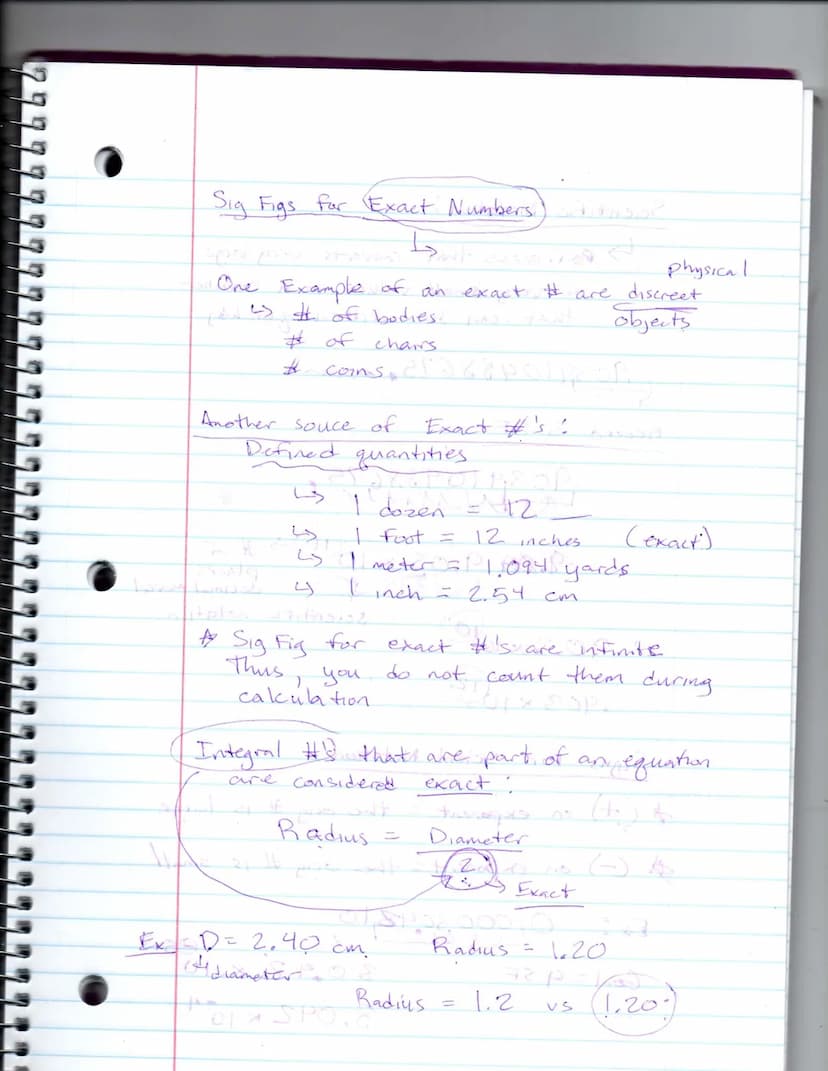 Sig Figs for Exact Numbers
↳
physical
One Example of an exact # are discreet
objects
↳ # of bodies
# of chairs
# coins.
Another souce of Exact #'s:
Defined quantities
↳ 1 dozen = 12 __
↳ 1 foot = 12 inches (exact)
↳ 1 meter = 1.094 yards
↳ 1 inch = 2.54 cm
* Sig Fig for exact #'s are infinite
Thus, you do not count them during
calculation
Integral #'s that are part of an equation
are considered exact:
Radius = Diameter
2 → Exact
Ex D = 2.40 cm Radius = 1.20
↳ diameter
Radius = 1.2 vs 1.20